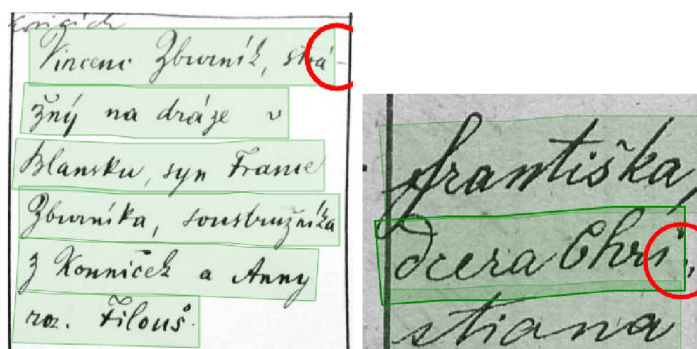 Konicích
Vincenc Zburník, strá-
žný na dráze v
Blansku, syn France
Zburníka, soustružníka
z Konniček a Anny
roz. Filouš.
františka,
dcera Chri,
stiana